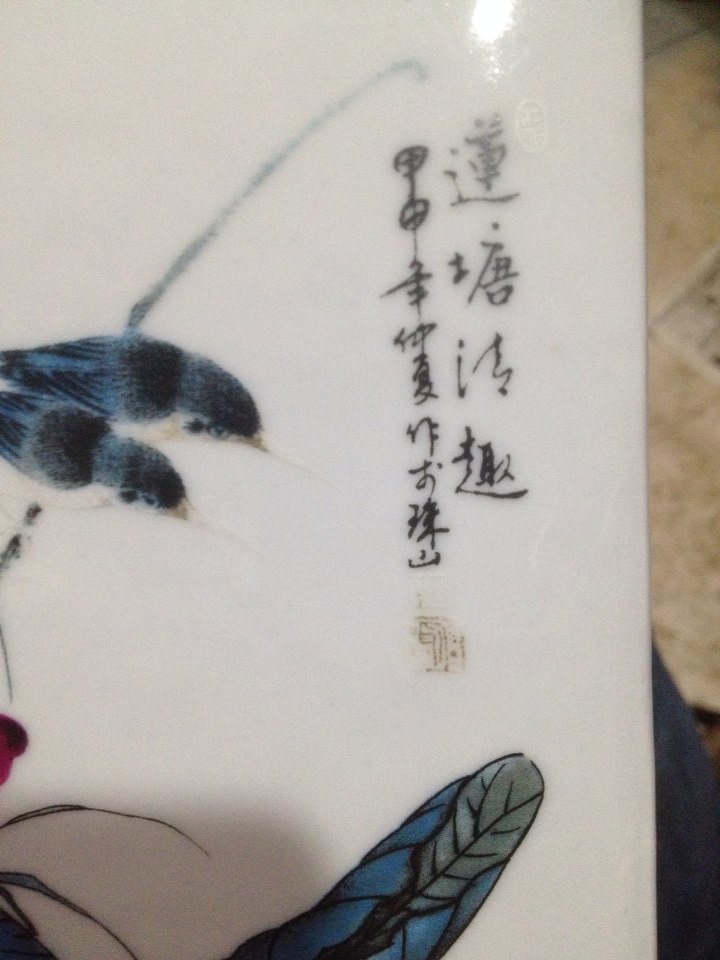 蓮塘清趣
甲申年仲夏作於珠山